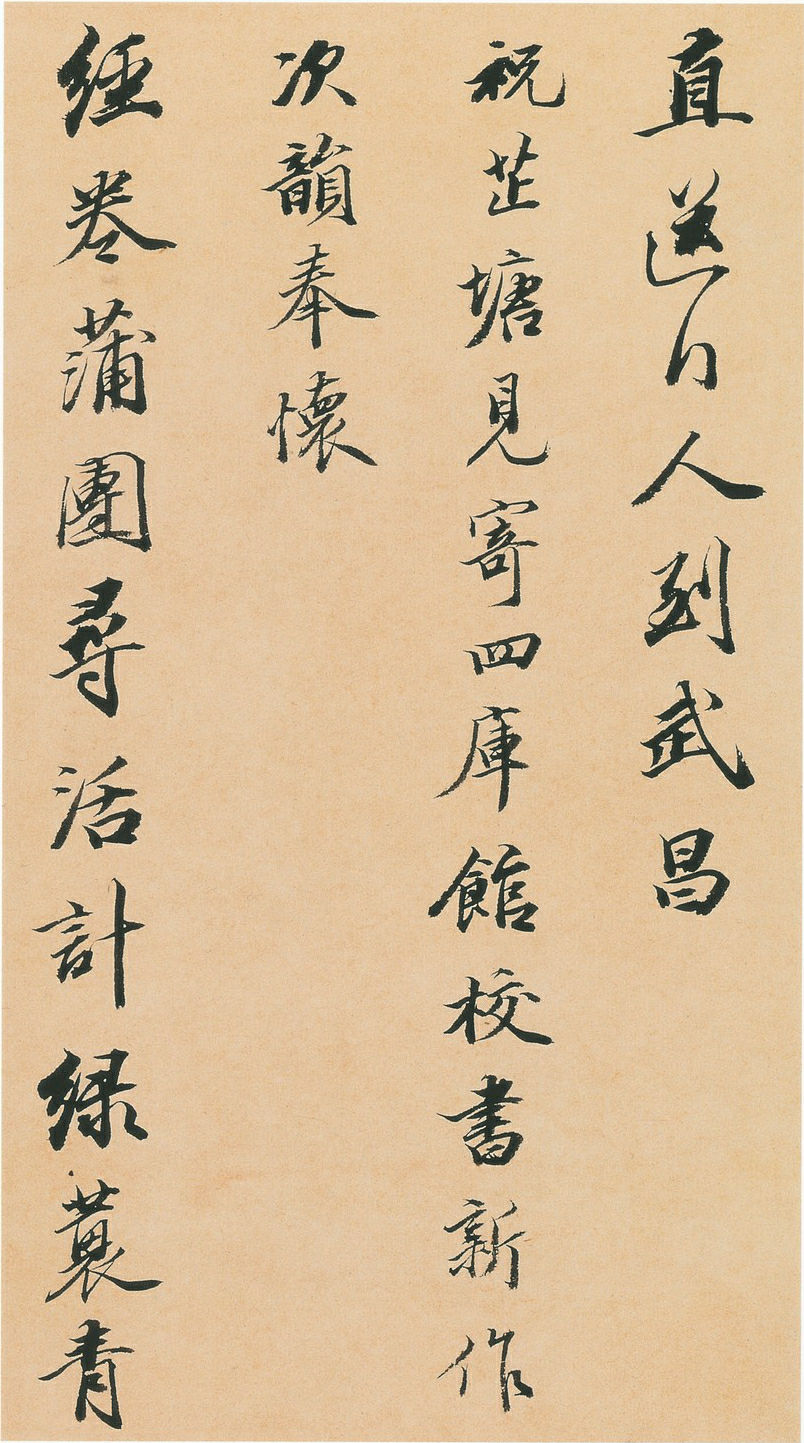 直送行人到武昌
祝芷塘見寄四庫館校書新作
次韻奉懷
經卷蒲團尋活計綠蓑青